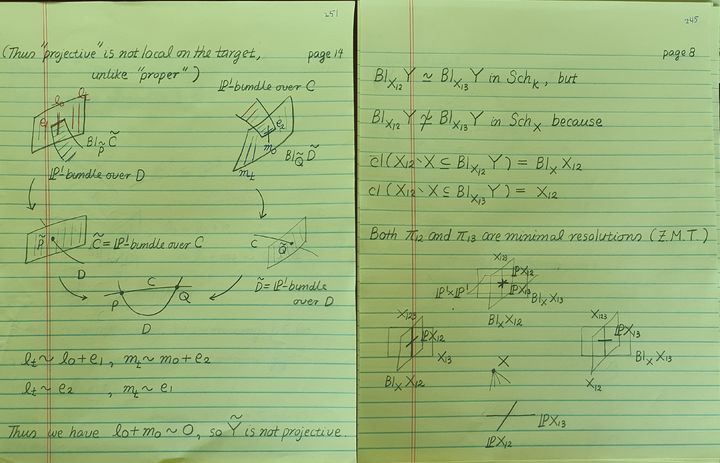 251
(Thus "projective" is not local on the target,
page 14
unlike "proper")
ℙ¹-bundle over C
l₀
lₜ
e₁
Bl_P̃ C̃
ℙ¹-bundle over D
e₂
m₀
mₜ
Bl_Q̃ D̃
P̃
C̃ = ℙ¹-bundle over C
D
C
Q̃
D̃ = ℙ¹-bundle
over D
C
P
Q
D
lₜ ~ l₀ + e₁, mₜ ~ m₀ + e₂
lₜ ~ e₂, mₜ ~ e₁
Thus we have l₀ + m₀ ~ 0, so Ỹ is not projective.
245
page 8
Bl_X₁₂ Y ≃ Bl_X₁₃ Y in Sch_k, but
Bl_X₁₂ Y ≄ Bl_X₁₃ Y in Sch_X because
cl(X₁₂∖X ⊆ Bl_X₁₂ Y) = Bl_X X₁₂
cl(X₁₂∖X ⊆ Bl_X₁₃ Y) = X₁₂
Both π₁₂ and π₁₃ are minimal resolutions (Z.M.T.)
X₁₂₃
ℙX₁₂
ℙ¹×ℙ¹
ℙX₁₃
Bl_X X₁₃
Bl_X X₁₂
X₁₂₃
ℙX₁₂
X₁₃
Bl_X X₁₂
X₁₂₃
ℙX₁₃
Bl_X X₁₃
X₁₂
X
ℙX₁₃
ℙX₁₂